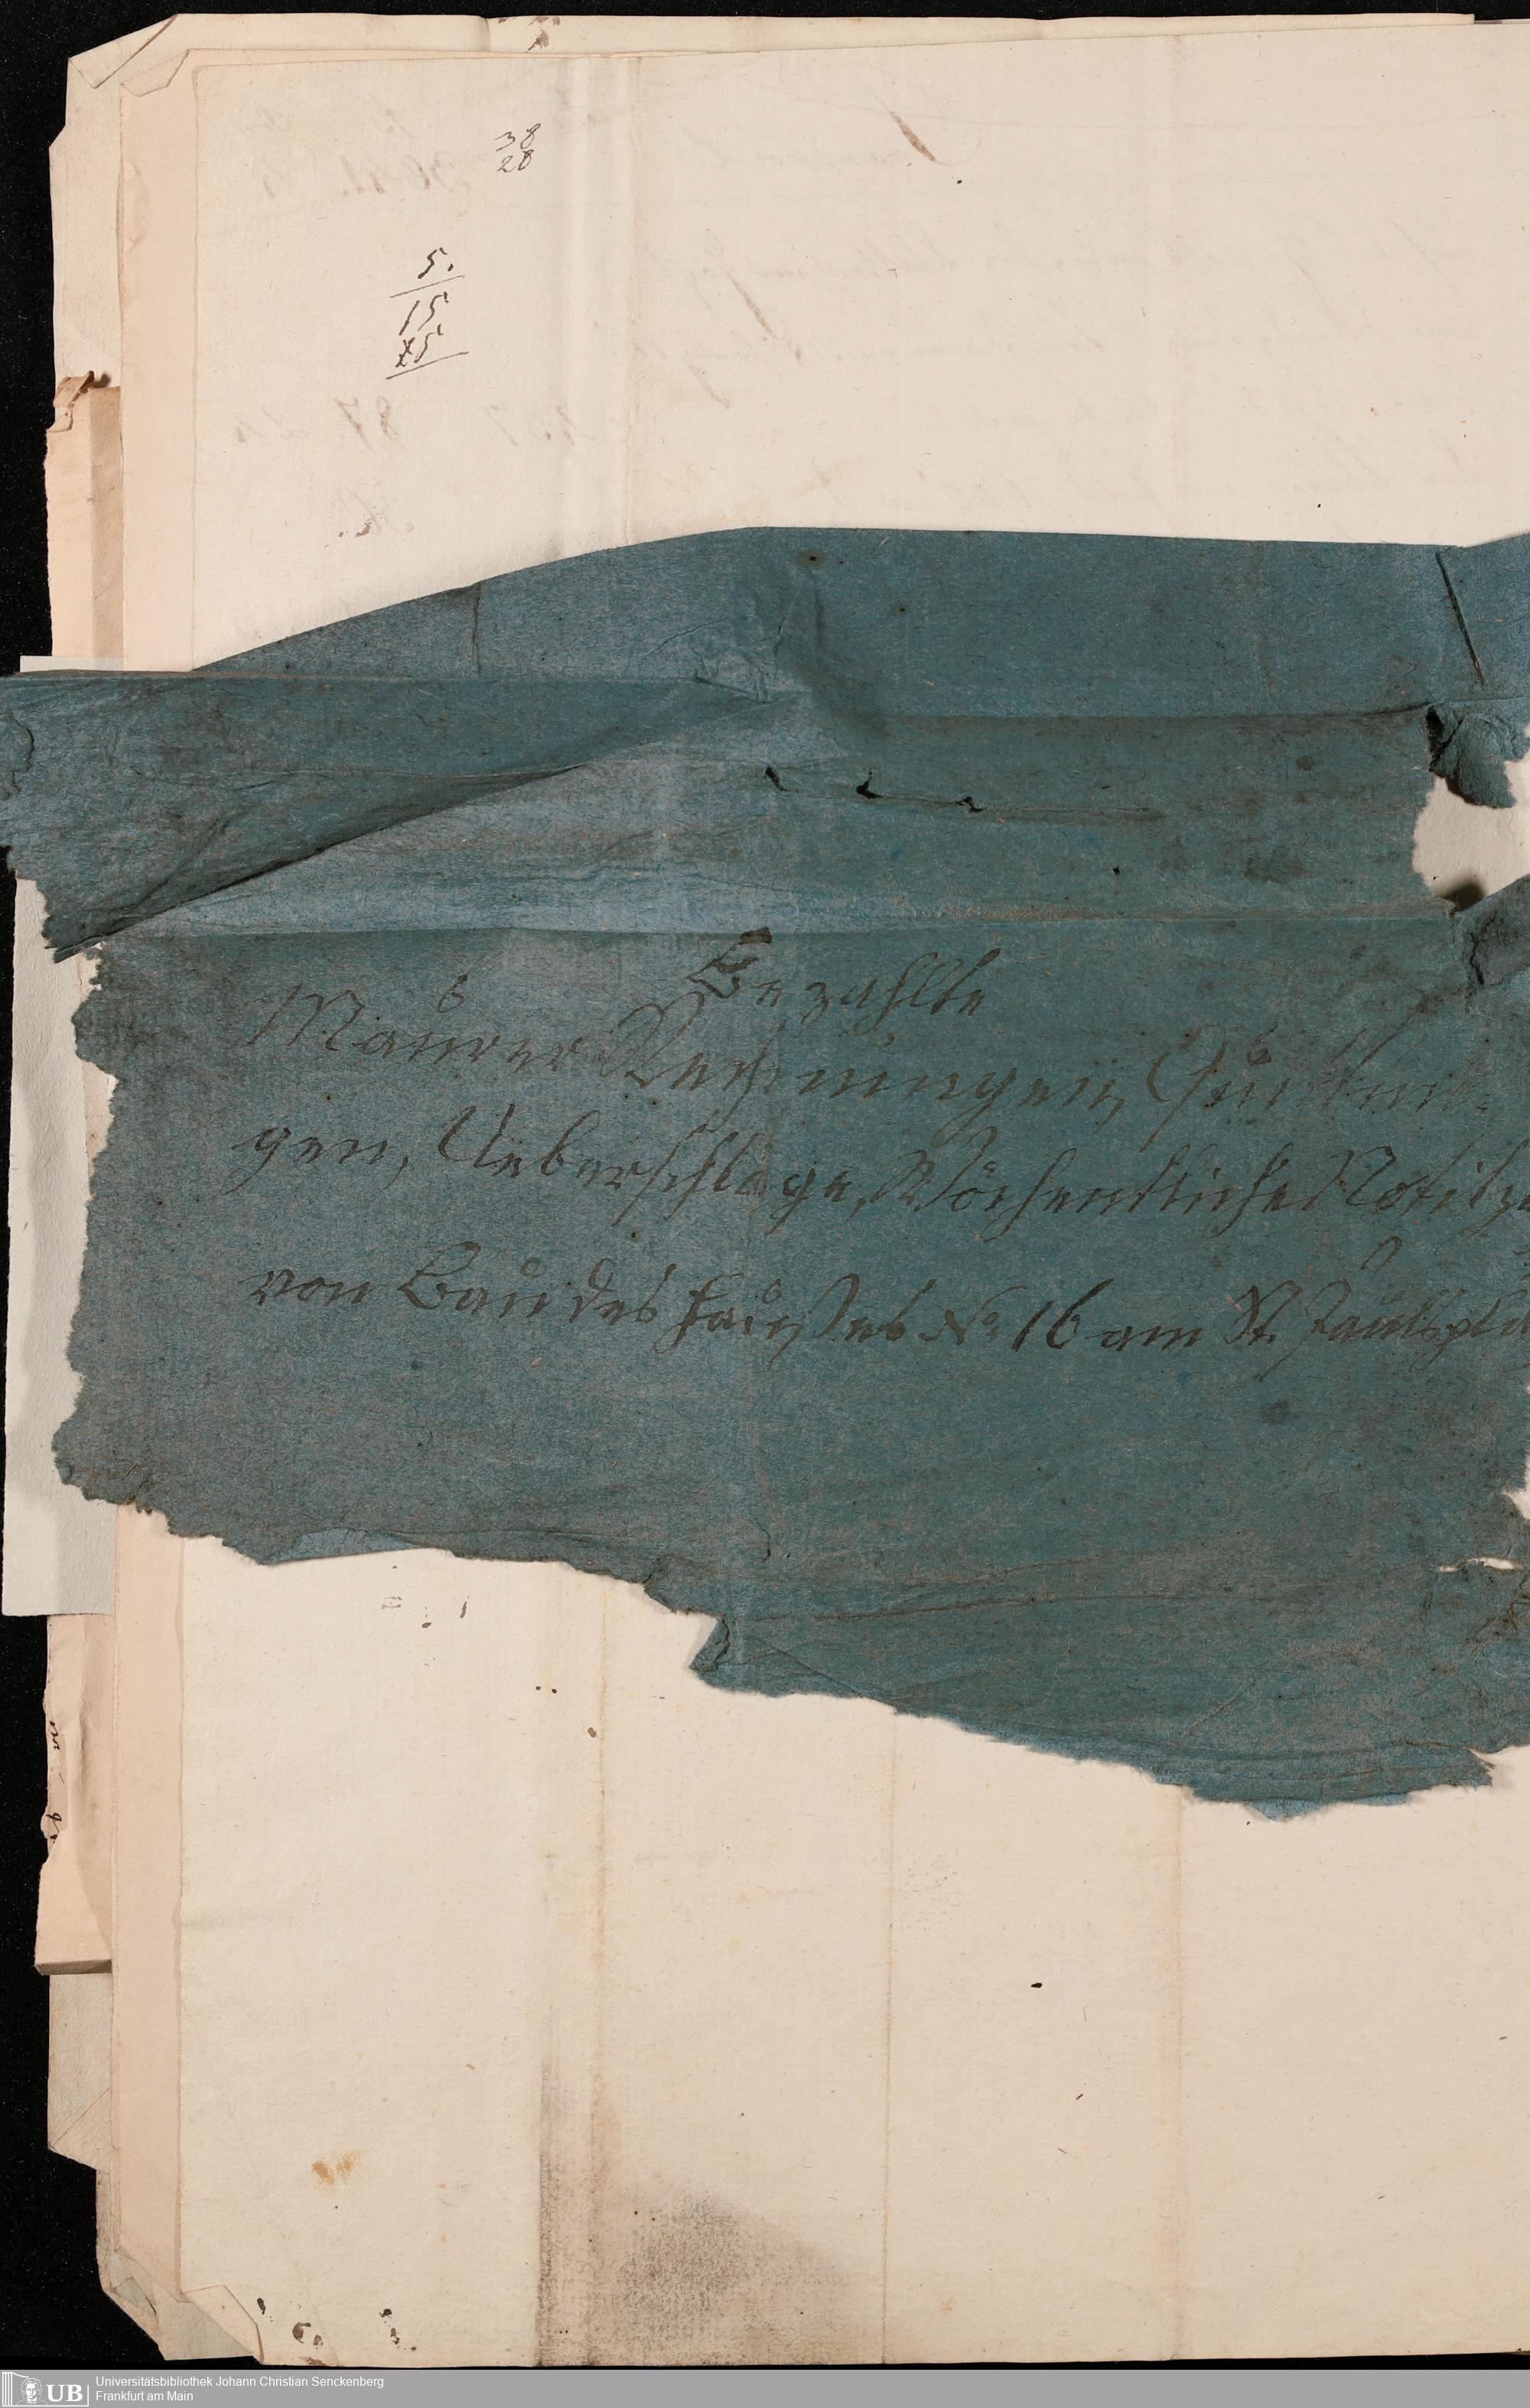 38
28
5.
15
25
Bezahlte
Maurer Rechnungen, Quittun-
gen, Ueberschläge, Wöchentliche Notitze
von Bau des Hauses No 16 am St. Paulspla
UB
Universitätsbibliothek Johann Christian Senckenberg
Frankfurt am Main